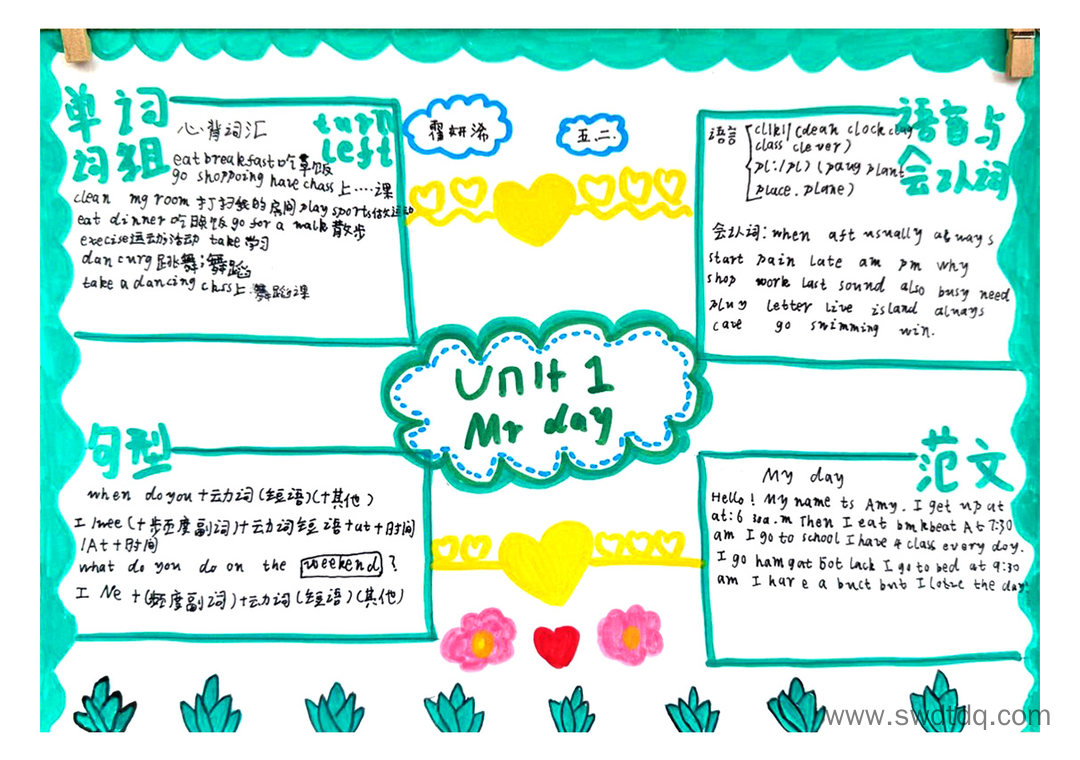 单词
词组
心背词汇
turn
left
eat breakfast吃早饭
go shoppoing have chass上……课
clean my room 打扫我的房间play sports做运动
eat dinner吃晚饭go for a walk散步
execise运动;活动 take学习
dan curg跳舞;舞蹈
take a dancing class上.舞蹈课
霍妍浠
五二.
语音与
会认词
语言
cl/kl/(clean clock clay
class clever)
pl:/pl)(paug plant
place.plane)
会认词:when aft usually always
start pain late am pm why
shop work last sound also busy need
pluy letter live island always
cave go swimming win.
Unit 1
My day
句型
when do you+动词(短语)(+其他)
I /wee(+步频度副词)+动词短语+at+时间
/At+时间
what do you do on the weekend?
I Ne+(频度副词)+动词(短语)(其他)
范文
My day
Hello! My name ts Amy. I get up at
at:6 30a.m Then I eat bmkbeat At 7:30
am I go to school I have 4 class every day.
I go ham gat bot lack I go to bed at 9:30
am I have a buct but I lotve the day.
www.swdtdq.com